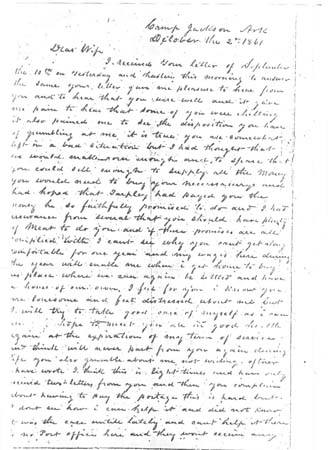 Camp Jackson Ark
October the 2nd 1861
Dear Wife
I received your letter of September
the 10th on yesterday and hasten this morning to answer
the same your letter gave me pleasure to hear from
you and to hear that you were well and it give
me pain to hear that some of you were chilling
it also pained me to see the disposition you have
of grumbling at me, it is true, you are somewhat
left in a bad situation but I had thought that
we would enough and to spare that
you could sell enough to supply all the money
you would need to buy your necessaries and
had hoped that had payed you the
money he so faithfully promised to do and I had
assurance from several that you should have plenty
of Meat to do you and if these promises are all
complied with I cant see why you cant get along
comfortable for one year and my wages here during
the year will enable me when i get home to buy
us place where we can again be settled and have
a house of our own, I feel for you i know you
are lonesome and feel distressed about me but
I will try to take good care of myself as i can
hope to meet you all in good health
again at the expiration of my term of service
and think will never part from you again during
life you also grumble about me not writing oftener
I have wrote I think this is eight times and have only
received two letters from you and then you complain
about having to pay the postage this is hard but
I dont see how i can help it and did not know
it was the case untill lately and cant help it there
is no Post office here and they wont receive